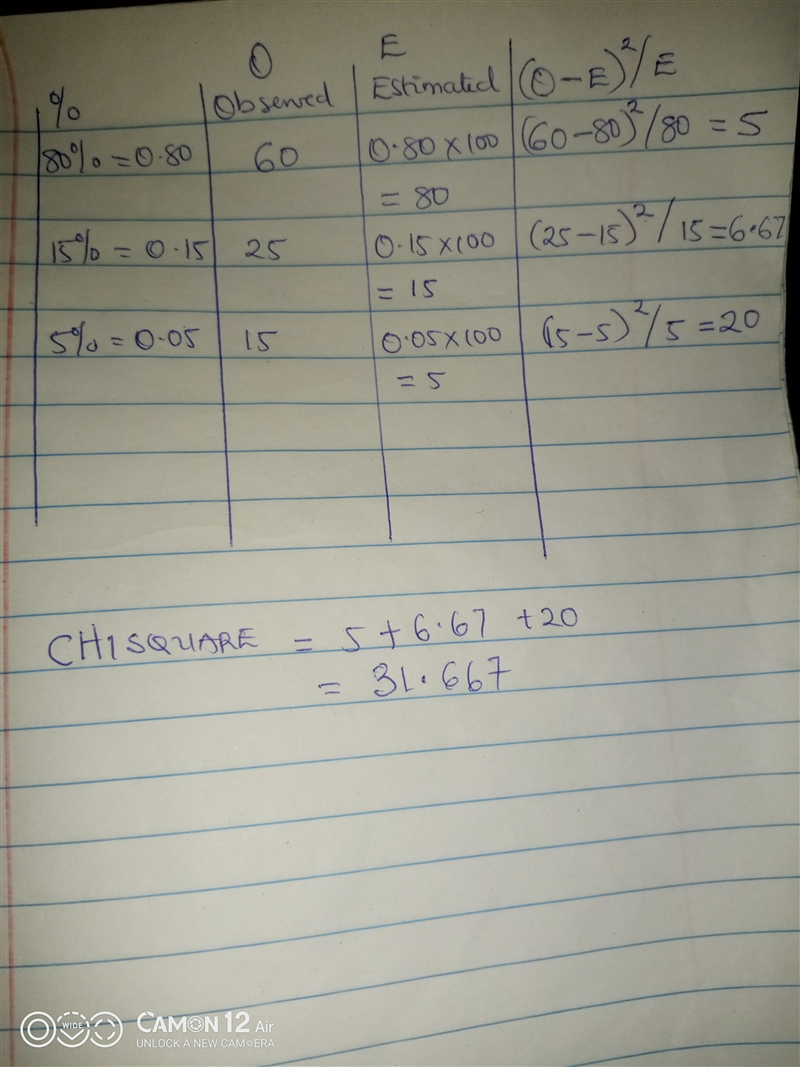 O E
% Observed Estimated (O-E)²/E
80% = 0.80 60 0.80 x 100 (60-80)²/80 = 5
= 80
15% = 0.15 25 0.15 x 100 (25-15)²/15=6.67
= 15
5% = 0.05 15 0.05 x 100 (15-5)²/5 = 20
= 5
CHI SQUARE = 5 + 6.67 + 20
= 31.667
WIDE CAMON 12 Air
UNLOCK A NEW CAMERA